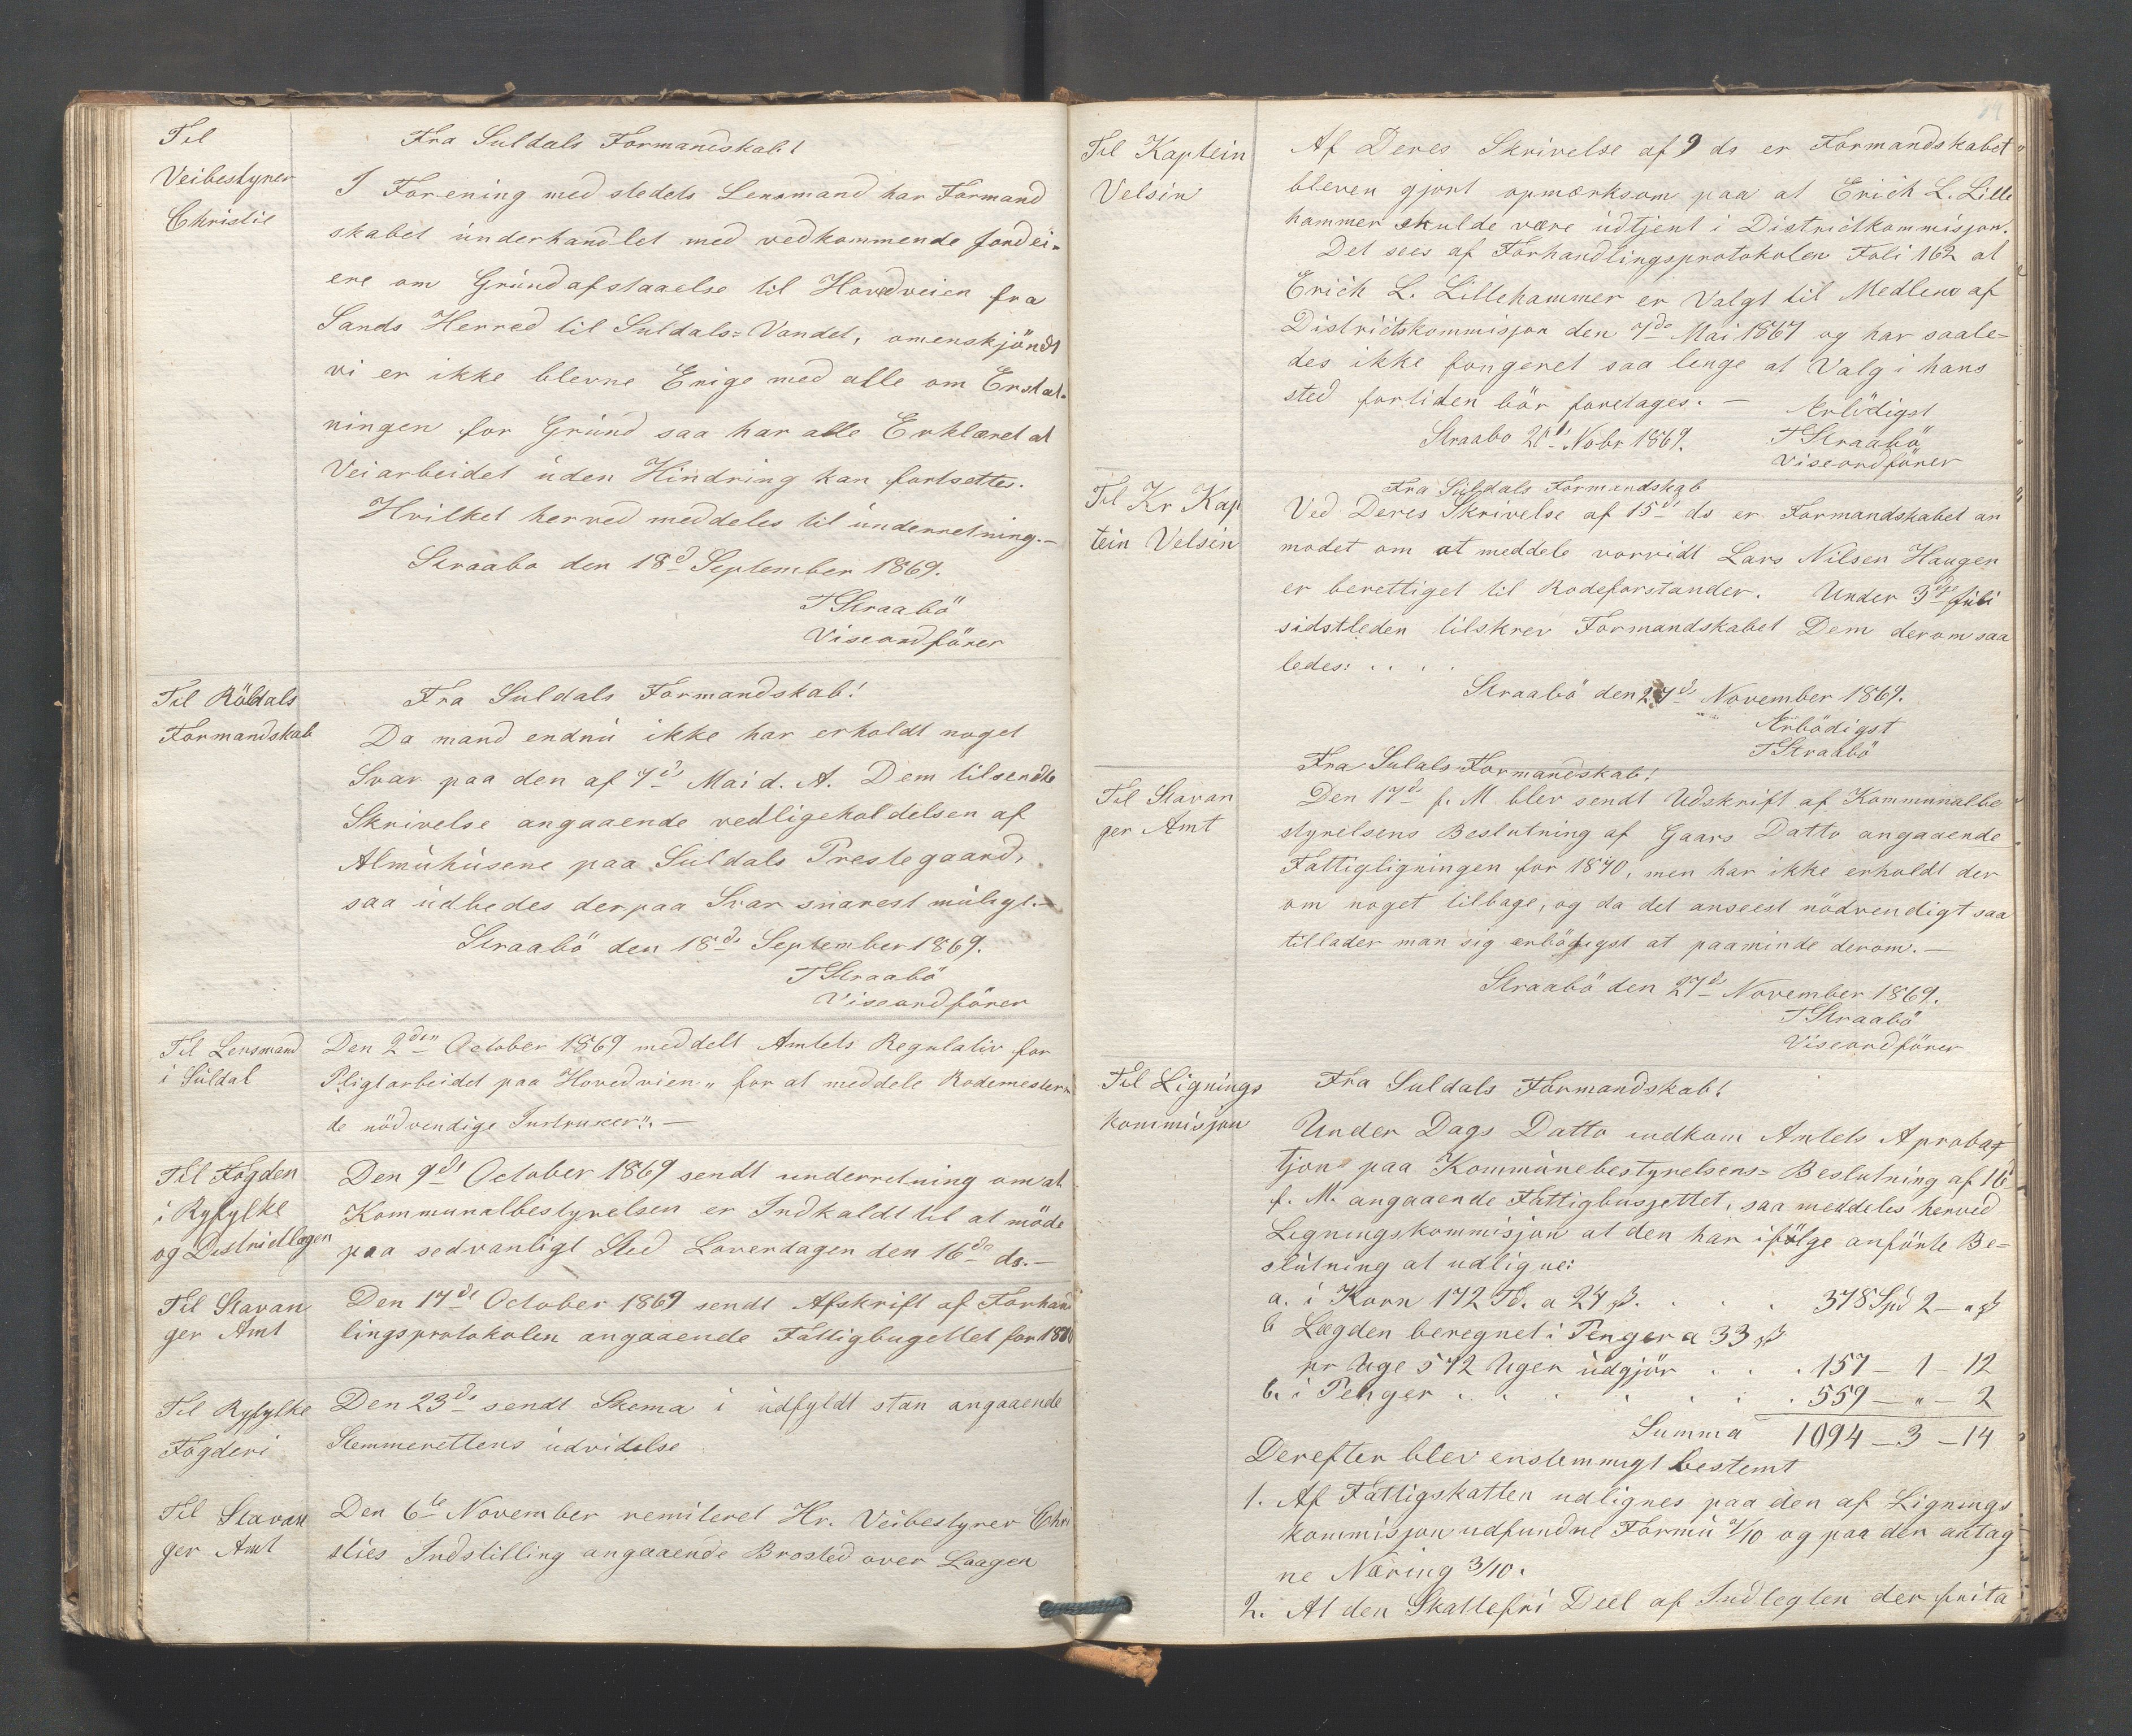 Til
Veibestyrer
Christie
Fra Suldals Formandskab!
I Forening med stedets Lensmand har Formand
skabet underhandlet med vedkommende jordei-
ere om Grundafstaaelse til Hovedveien fra
Sands Herred til Suldals=Vandet, omenskjöndt
vi er ikke blevne Enige med alle om Erstat-
ningen for Grund saa har alle Erklæret at
Veiarbeidet uden Hindring kan fortsettes.
Hvilket herved meddeles til underretning.-
Straabø den 18d September 1869.
T Straabö
Viseordförer
Til Röldals
Formandskab
Fra Suldals Formandskab!
Da mand endnu ikke har erholdt noget
Svar paa den af 7ds Mai d. A. Dem tilsendte
Skrivelse angaaende vedligeholdelsen af
Almuhusene paa Suldals Prestegaard,
saa udbedes derpaa Svar snarest muligt.-
Straabö den 18ds September 1869.
T Straabö
Viseordförer
Til Lensmand
i Suldal
Den 2den October 1869 meddelt Amtets Regulativ for
Pligtarbeidet paa Hovedveien „ for at meddele Rodemestern
de nödvendige Instruxer". -
Til Fogden
i Ryfylke
og Distriktlægen
Den 9ds October 1869 sendt underretning om at
Kommunalbestyrelsen er Indkaldt til at möde
paa sedvanligt Sted Löverdagen den 16de ds.-
Til Stavan
ger Amt
Den 17ds October 1869 sendt Afskrift af Forhan
lingsprotokolen angaaende Fattigbugettet for 1870
Til Ryfylke
Fogderi
Den 23ds sendt Skema i udfyldt stan angaaende
Stemmerettens udvidelse
Til Stavan
ger Amt
Den 6te November remiteret Hr. Veibestyrer Chri
sties Indstilling angaaende Brosted over Laagen
Til Kaptein
Velsin
Af Deres Skrivelse af 9 ds er Formandskabet
bleven gjort opmærksom paa at Erich L. Lille
hammer skulde være udtjent i Districtkommisjon.
Det sees af Forhandlingsprotokolen Foli 162 at
Erich L. Lillehammer er Valgt til Medlem af
Districtskommisjon den 7de Mai 1867 og har saale-
des ikke fongeret saa lenge at Valg i hans
sted fortiden bör foretages. -
Straabo 20ds Nobr 1869.
Ærbödigst
T Straabö
Viseordförer
Til Kr Kap
tein Velsin
Fra Suldals Formandskab
Ved Deres Skrivelse af 15ds ds er Formandskabet an
modet om at meddele vorvidt Lars Nilsen Haugen
er berettiget til Rodeforstander. Under 3die Juli
sidstleden tilskrev Formandskabet Dem derom saa
ledes: . . . .
Straabö den 27ds November 1869.
Ærbödigst
T Straabö
Til Stavan
ger Amt
Fra Sulals Formandskab!
Den 17ds f. M blev sendt Udskrift af Kommunalbe
styrelsens Beslutning af Gaars Datto angaaende
Fattigligningen for 1870, men har ikke erholdt der
om noget tilbage, og da det anseest nödvendigt saa
tillader man sig ærbödigst at paaminde derom. -
Straabö den 27ds November 1869.
T Straabö
Viseordförer
Til Lignings
kommisjon
Fra Suldals Formandskab!
Under Dags Datto indkom Amtets Aproba=
tjon paa Kommunebestyrelsens= Beslutning af 16
f. M. angaaende Fattigbusjettet, saa meddeles herved
Legningskommisjon at den har ifölge anförte Be=
slutning at udligne:
a. i Korn 172 Td. a 24 ß. . . . . 378 Spd 2 - " ß
b Lægden beregnet i Penger a 33 ß
pr Uge 572 Uger udgjör . . . 157 - 1 - 12
6. i Penger . . . . . . . 559 - " - 2
Summa 1094 - 3 - 14
Derefter blev enstemmigt bestemt
1. Af Fattigskatten udlignes paa den af Lignings
kommisjon udfundne Formu 7/10 og paa den antag
ne Næring 3/10.
2. At den Skattefri Deel af Indtegten der frita